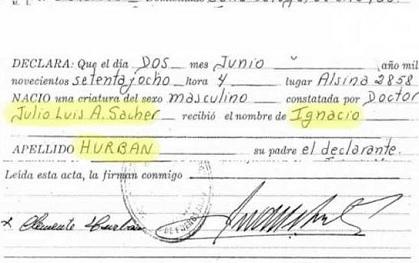 DECLARA: Que el día DOS mes Junio año mil
novecientos setentaiocho hora 4 lugar Alsina 2858
NACIO una criatura del sexo masculino constatada por Doctor
Julio Luis A. Sacher recibió el nombre de Ignacio
APELLIDO HURBAN su padre el declarante.
Leída esta acta, la firman conmigo
x Clemente Hurban